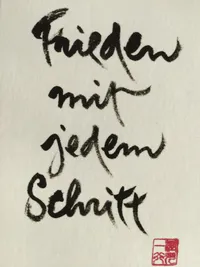 Frieden
mit
jedem
Schritt